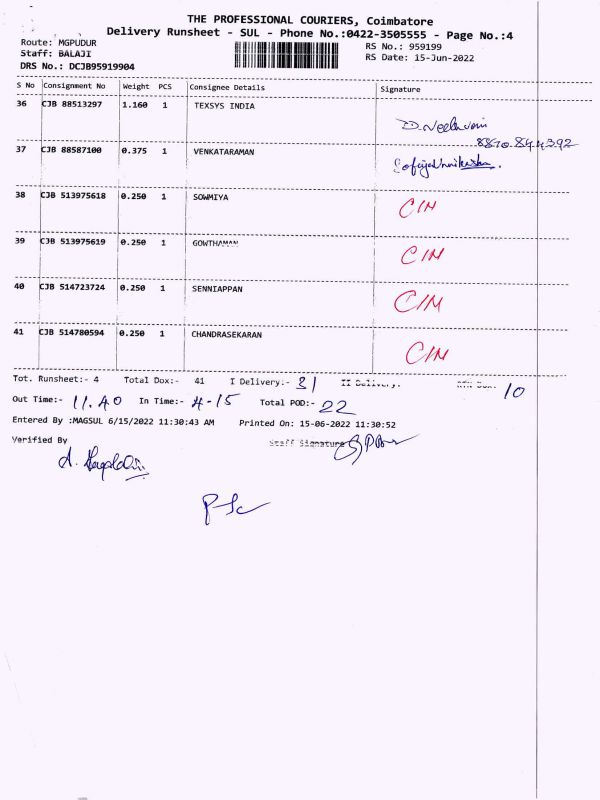 THE PROFESSIONAL COURIERS, Coimbatore
Delivery Runsheet - SUL - Phone No.:0422-3505555 - Page No.:4
Route: MGPUDUR
Staff: BALAJI
DRS No.: DCJB95919904
RS No.: 959199
RS Date: 15-Jun-2022
S No Consignment No Weight PCS Consignee Details Signature
36 CJB 88513297 1.160 1 TEXSYS INDIA
37 CJB 88587100 0.375 1 VENKATARAMAN
38 CJB 513975618 0.250 1 SOWMIYA C/N
39 CJB 513975619 0.250 1 GOWTHAMAN C/N
40 CJB 514723724 0.250 1 SENNIAPPAN C/N
41 CJB 514780594 0.250 1 CHANDRASEKARAN C/N
Tot. Runsheet:- 4 Total Dox:- 41 I Delivery:- 31 II Delivery:- 10
Out Time:- 11.40 In Time:- 4-15 Total POD:- 22
Entered By :MAGSUL 6/15/2022 11:30:43 AM Printed On: 15-06-2022 11:30:52
Verified By Staff Signature